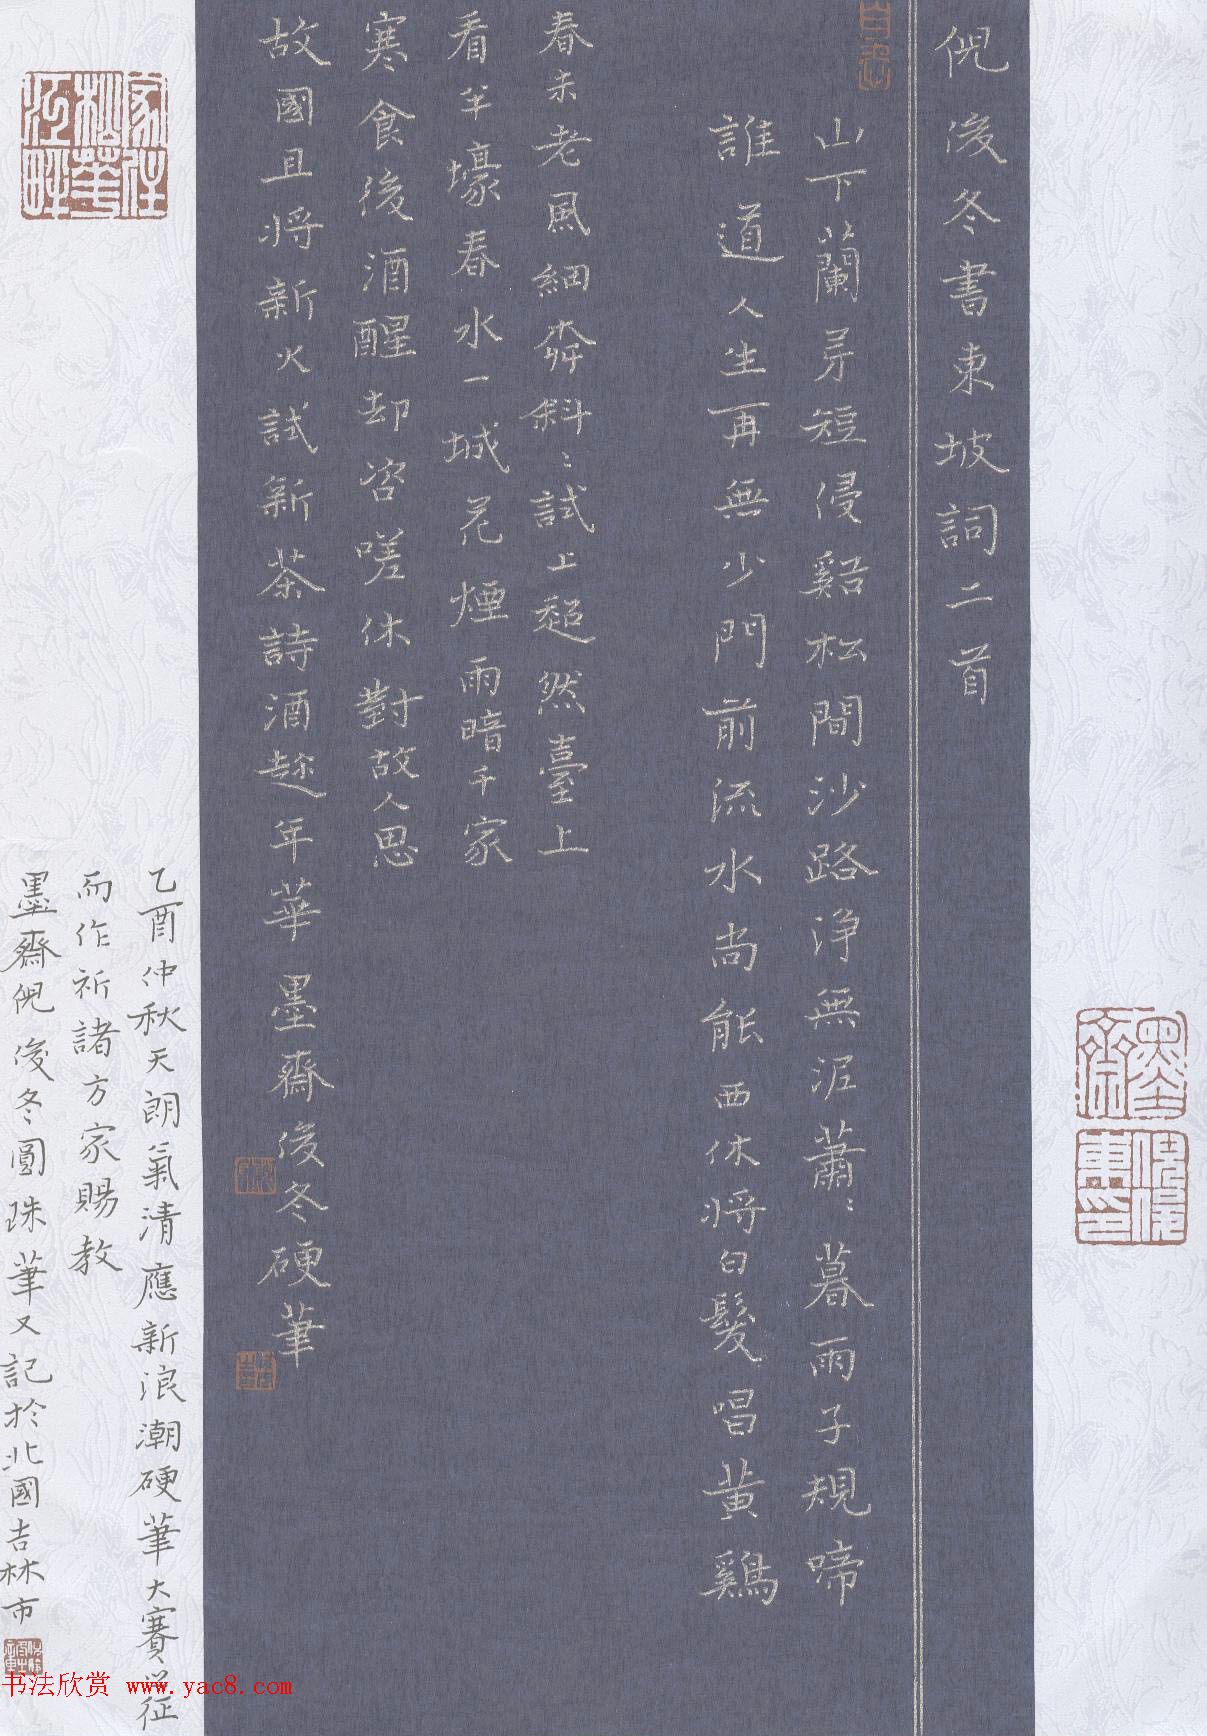 倪後冬書東坡詞二首
山下蘭芽短侵谿松間沙路淨無泥蕭〻暮雨子規啼
誰道人生再無少門前流水尚能西休將白髮唱黄鷄
春未老風細柳斜〻試上超然臺上
看半壕春水一城花煙雨暗千家
寒食後酒醒却咨嗟休對故人思
故國且將新火試新茶詩酒趁年華墨齋後冬硬筆
乙酉仲秋天朗氣清應新浪潮硬筆大賽以征
而作祈諸方家賜教
墨齋倪後冬圓珠筆又記於北國吉林市
家住松華江畔
墨齋
书法欣赏 www.yac8.com